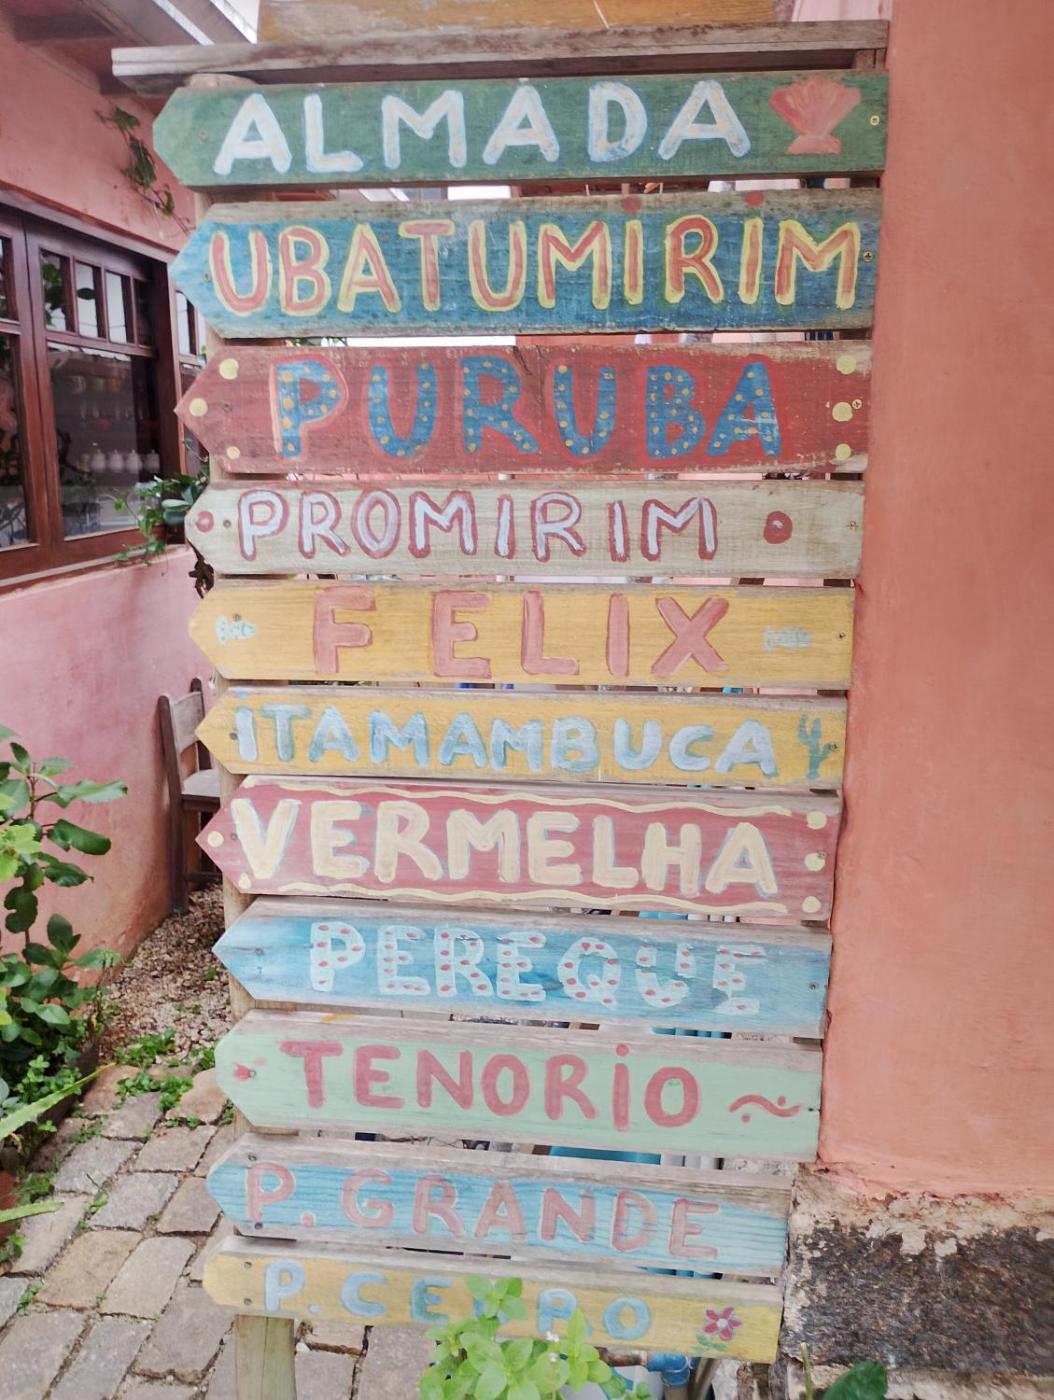 ALMADA
UBATUMIRIM
PURUBA
PROMIRIM
FELIX
ITAMAMBUCA
VERMELHA
PEREQUE
TENORIO
P. GRANDE
P.